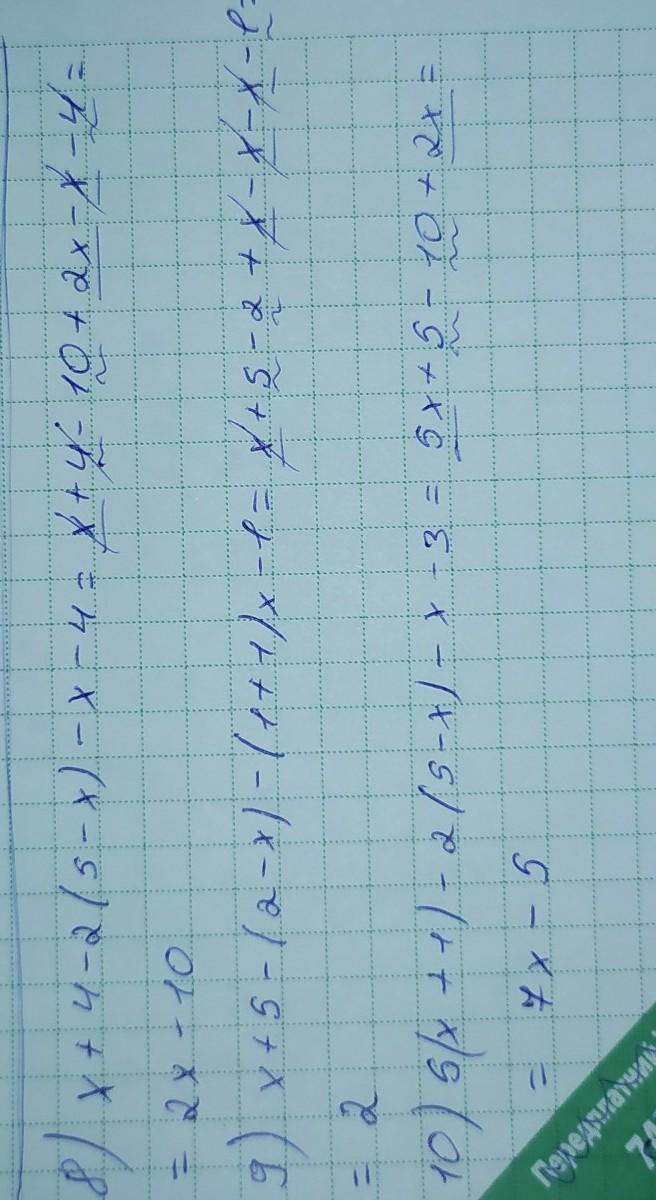 8) x + 4 - 2(5 - x) - x - 4 = x + 4 - 10 + 2x - x - 4 =
= 2x - 10
9) x + 5 - (2 - x) - (1 + 1)x - 1 = x + 5 - 2 + x - x - x - 1 =
= 2
10) 5(x + 1) - 2(5 - x) - x - 3 = 5x + 5 - 10 + 2x =
= 7x - 5